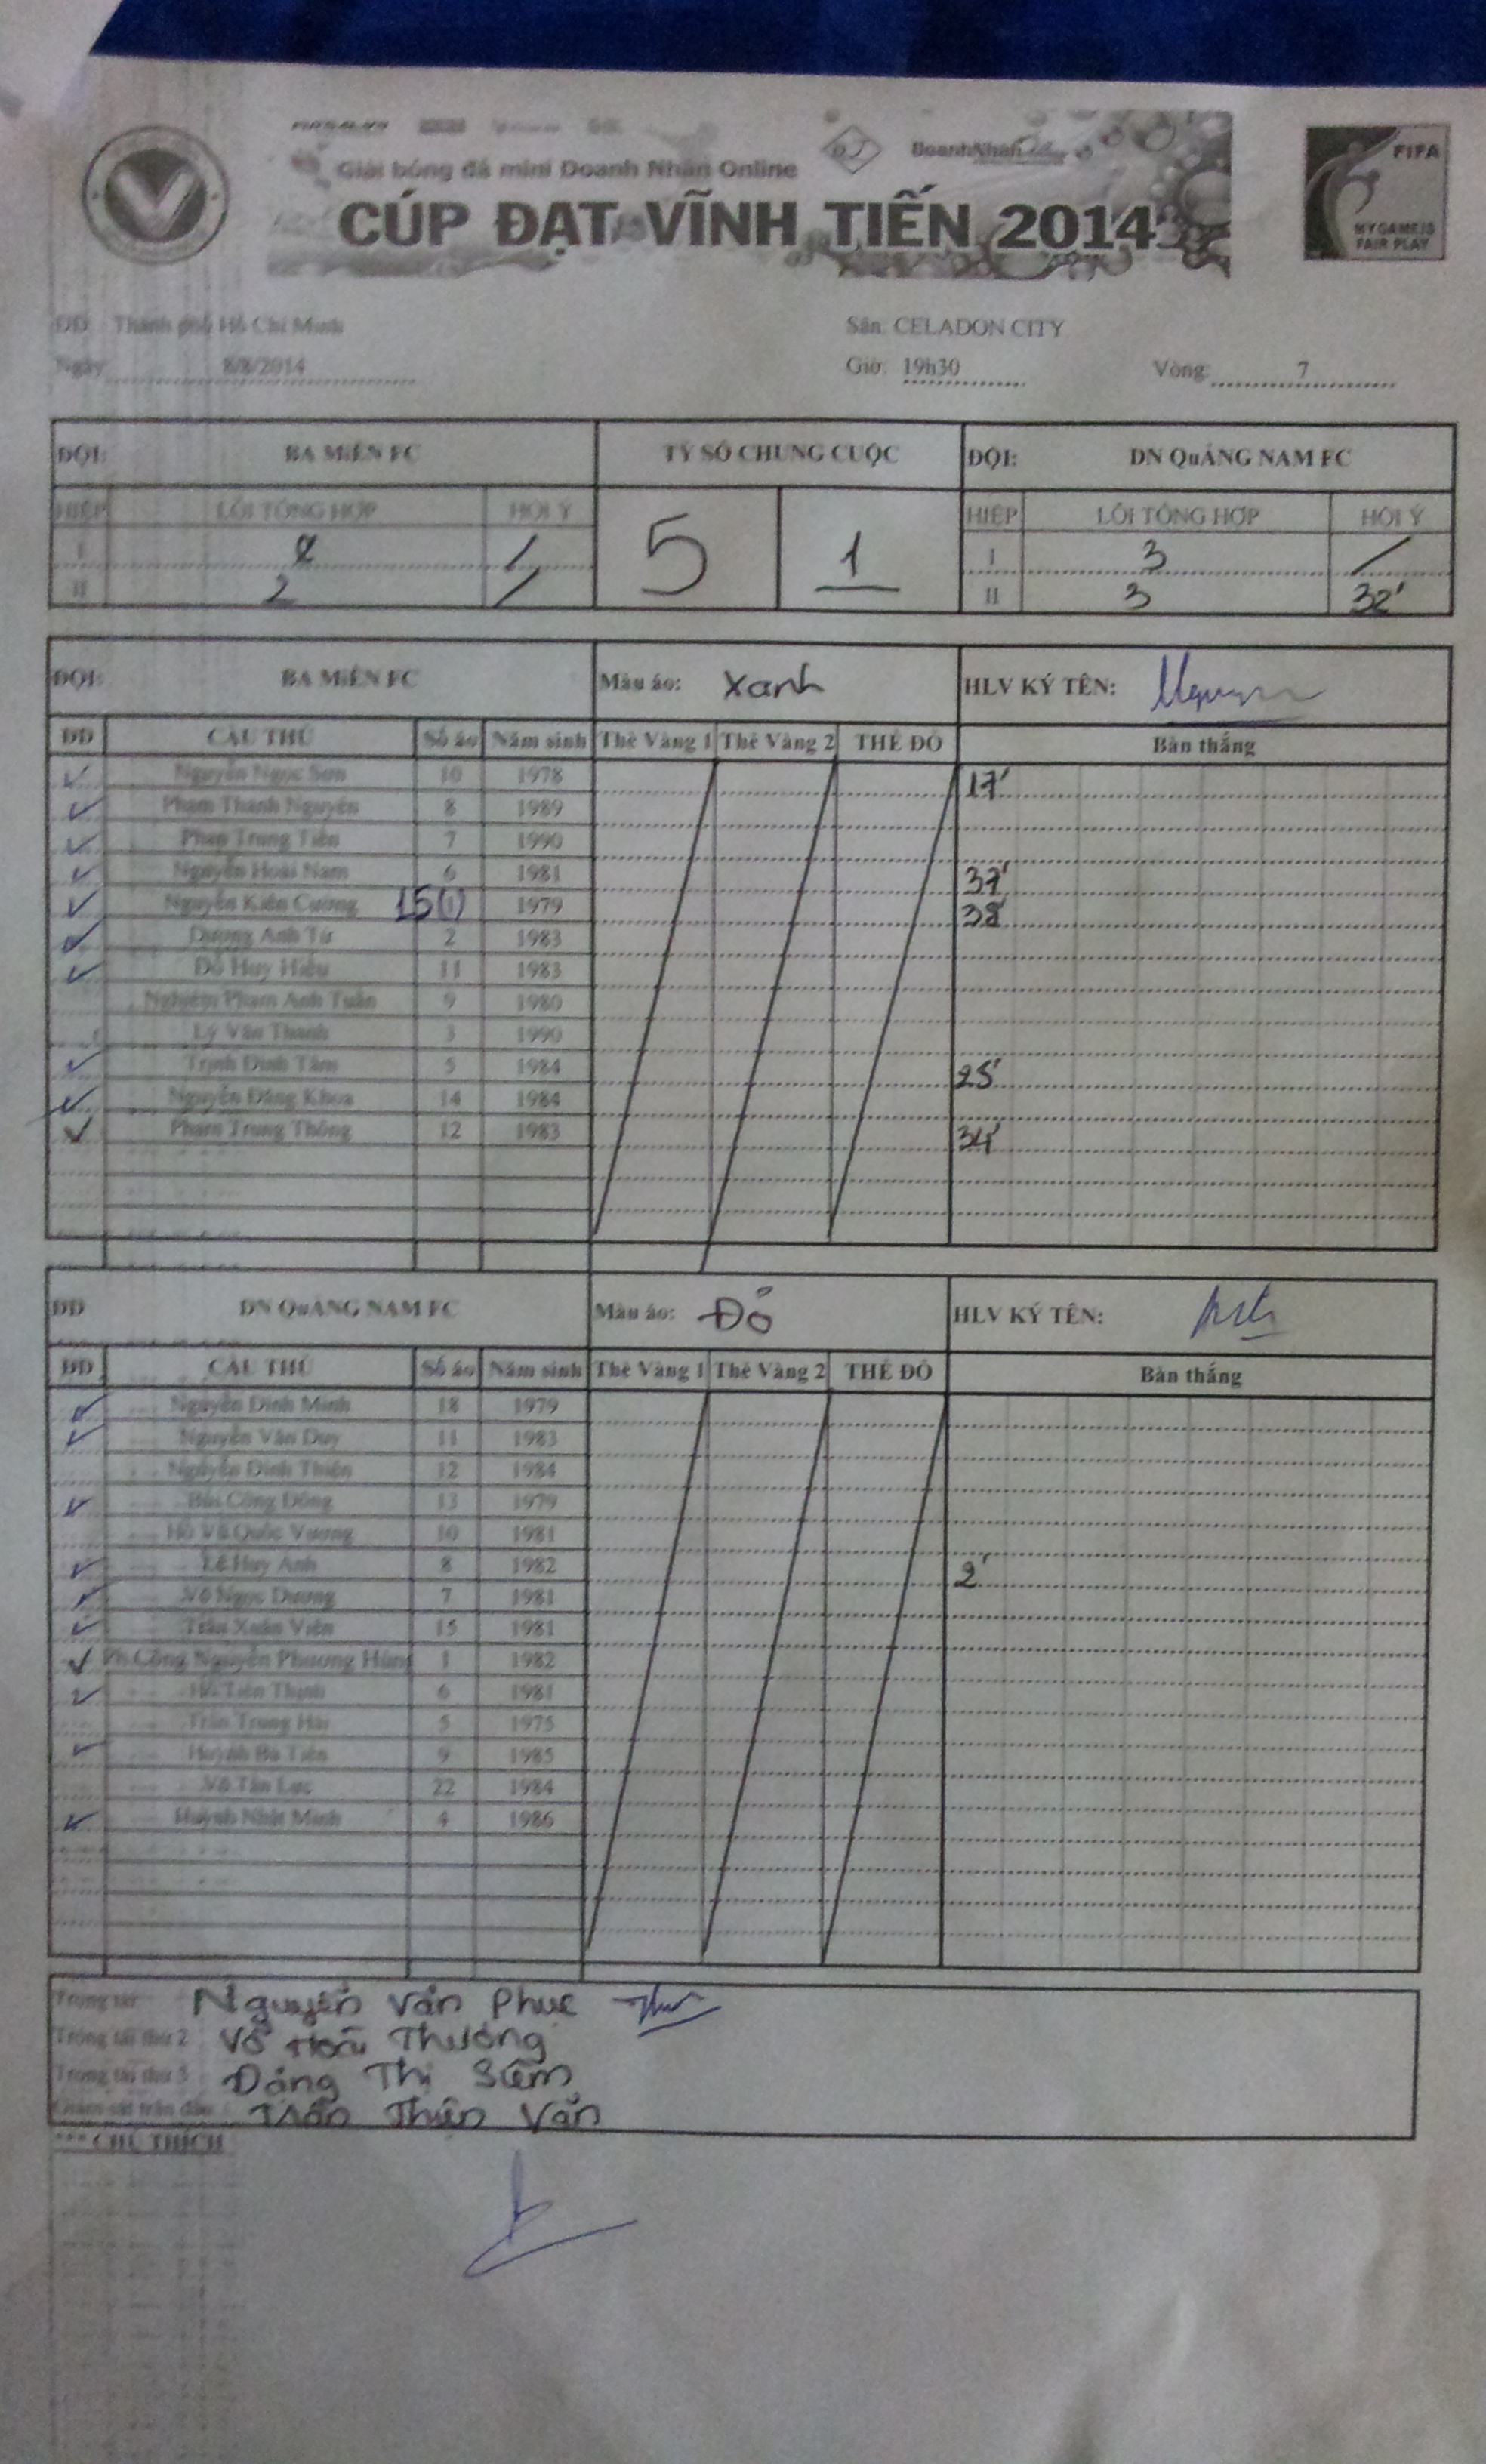 Giải bóng đá mini Doanh Nhân Online
DoanhNhân
CÚP ĐẠT VĨNH TIẾN 2014
FIFA
MY GAME IS
FAIR PLAY
DĐ: Thành phố Hồ Chí Minh Sân: CELADON CITY
Ngày: 8/8/2014 Giờ: 19h30 Vòng: 7
ĐỘI: BA MiỀN FC TỶ SỐ CHUNG CUỘC ĐỘI: DN QuẢNG NAM FC
HIỆP LỖI TỔNG HỢP HỘI Ý 5 1 HIỆP LỖI TỔNG HỢP HỘI Ý
I / I 3 /
II 2 / II 3 32'
ĐỘI: BA MiỀN FC Màu áo: Xanh HLV KÝ TÊN:
DD CẦU THỦ Số áo Năm sinh Thẻ Vàng 1 Thẻ Vàng 2 THẺ ĐỎ Bàn thắng
Nguyễn Ngọc Sơn 10 1978 17'
Phạm Thanh Nguyên 8 1989
Phan Trung Tiên 7 1990
Nguyễn Hoài Nam 6 1981 37'
Nguyễn Kiên Cường 15(1) 1979 38'
Dương Anh Tú 2 1983
Đỗ Huy Hiệu 11 1983
Nghiêm Phạm Anh Tuấn 9 1980
Lý Văn Thanh 3 1990
Trịnh Đình Tâm 5 1984 25'
Nguyễn Đăng Khoa 14 1984
Phạm Trung Thông 12 1983 34'
DD DN QuẢNG NAM FC Màu áo: Đỏ HLV KÝ TÊN:
DD CẦU THỦ Số áo Năm sinh Thẻ Vàng 1 Thẻ Vàng 2 THẺ ĐỎ Bàn thắng
Nguyễn Đình Minh 18 1979
Nguyễn Văn Duy 11 1983
Nguyễn Đình Thiện 12 1984
Bùi Công Đông 13 1979
Hồ Vũ Quốc Vương 10 1981
Lê Huy Anh 8 1982 2'
Võ Ngọc Dương 7 1981
Trần Xuân Viên 15 1981
Ph.Công Nguyễn Phương Hùng 1 1982
Tiến Thịnh 6 1981
Trần Trung Hải 5 1975
Huỳnh Bá Tiên 9 1985
Võ Tấn Lực 22 1984
Huỳnh Nhật Minh 4 1986
Trọng tài Nguyễn Văn Phúc
Trọng tài thứ 2 Võ Hoài Thương
Trọng tài thứ 3 Đặng Thị
Giám sát trận đấu Trần Thiện Văn
*** CHÚ THÍCH